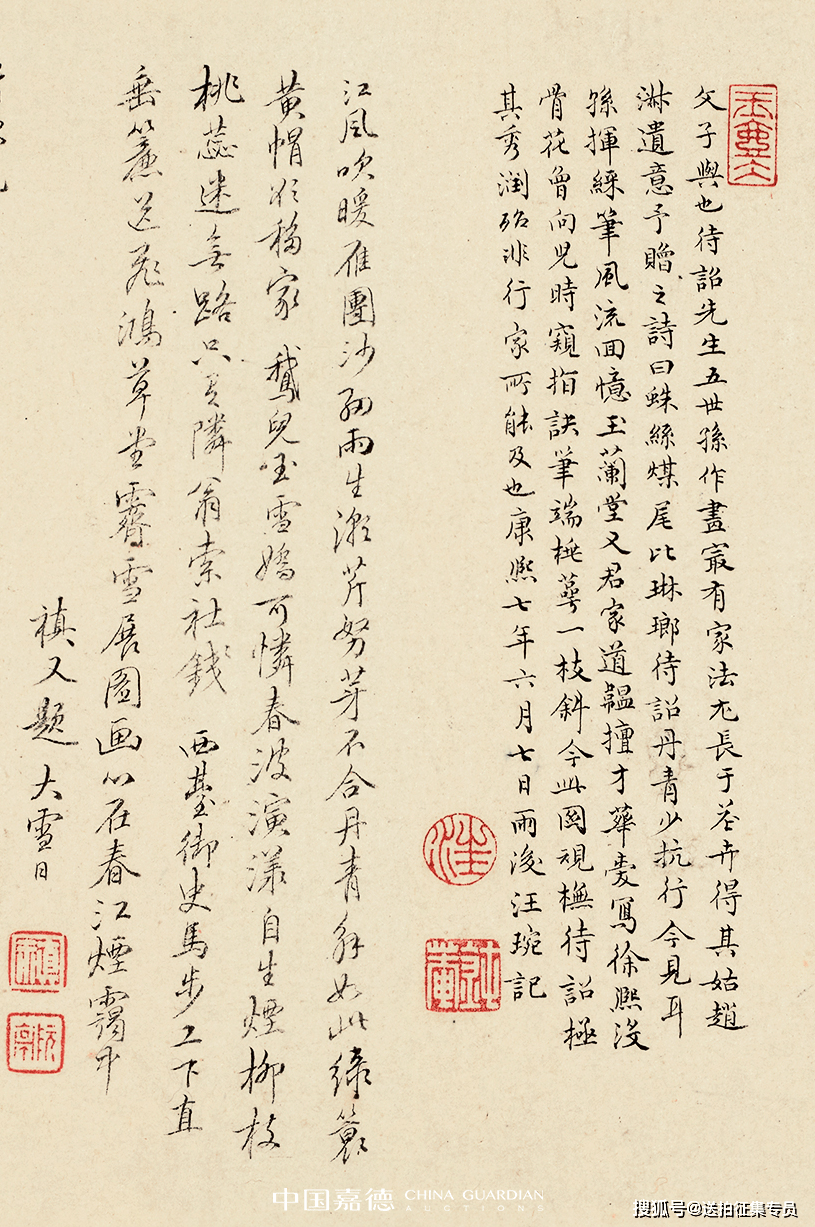 父子與也待詔先生五世孫作畫寂有家法尤長于花卉得其姑趙
淋遺意予贈之詩曰蛛絲煤尾比琳瑯待詔丹青少抗行今見耳
孫揮綵筆風流回憶玉蘭堂又君家道韞擅才華愛寫徐熙沒
骨花曾向兒時窺指訣筆端桃萼一枝斜今此圖規橅待詔極
其秀潤殆非行家所能及也康熙七年六月七日雨後汪琬記
江風吹暖雁團沙細雨生漪芹努芽不合丹青解如此綠蓑
黃帽欲移家 鵝兒玉雪嬌可憐春波演漾自生煙柳枝
桃蕊迷無路只有隣翁索社錢 西臺御史馬步工下直
垂簾送飛鴻草堂霽雪展圖畫心在春江煙靄中
禛又題 大雪日
中国嘉德 CHINA GUARDIAN AUCTIONS
搜狐号@送拍征集专员